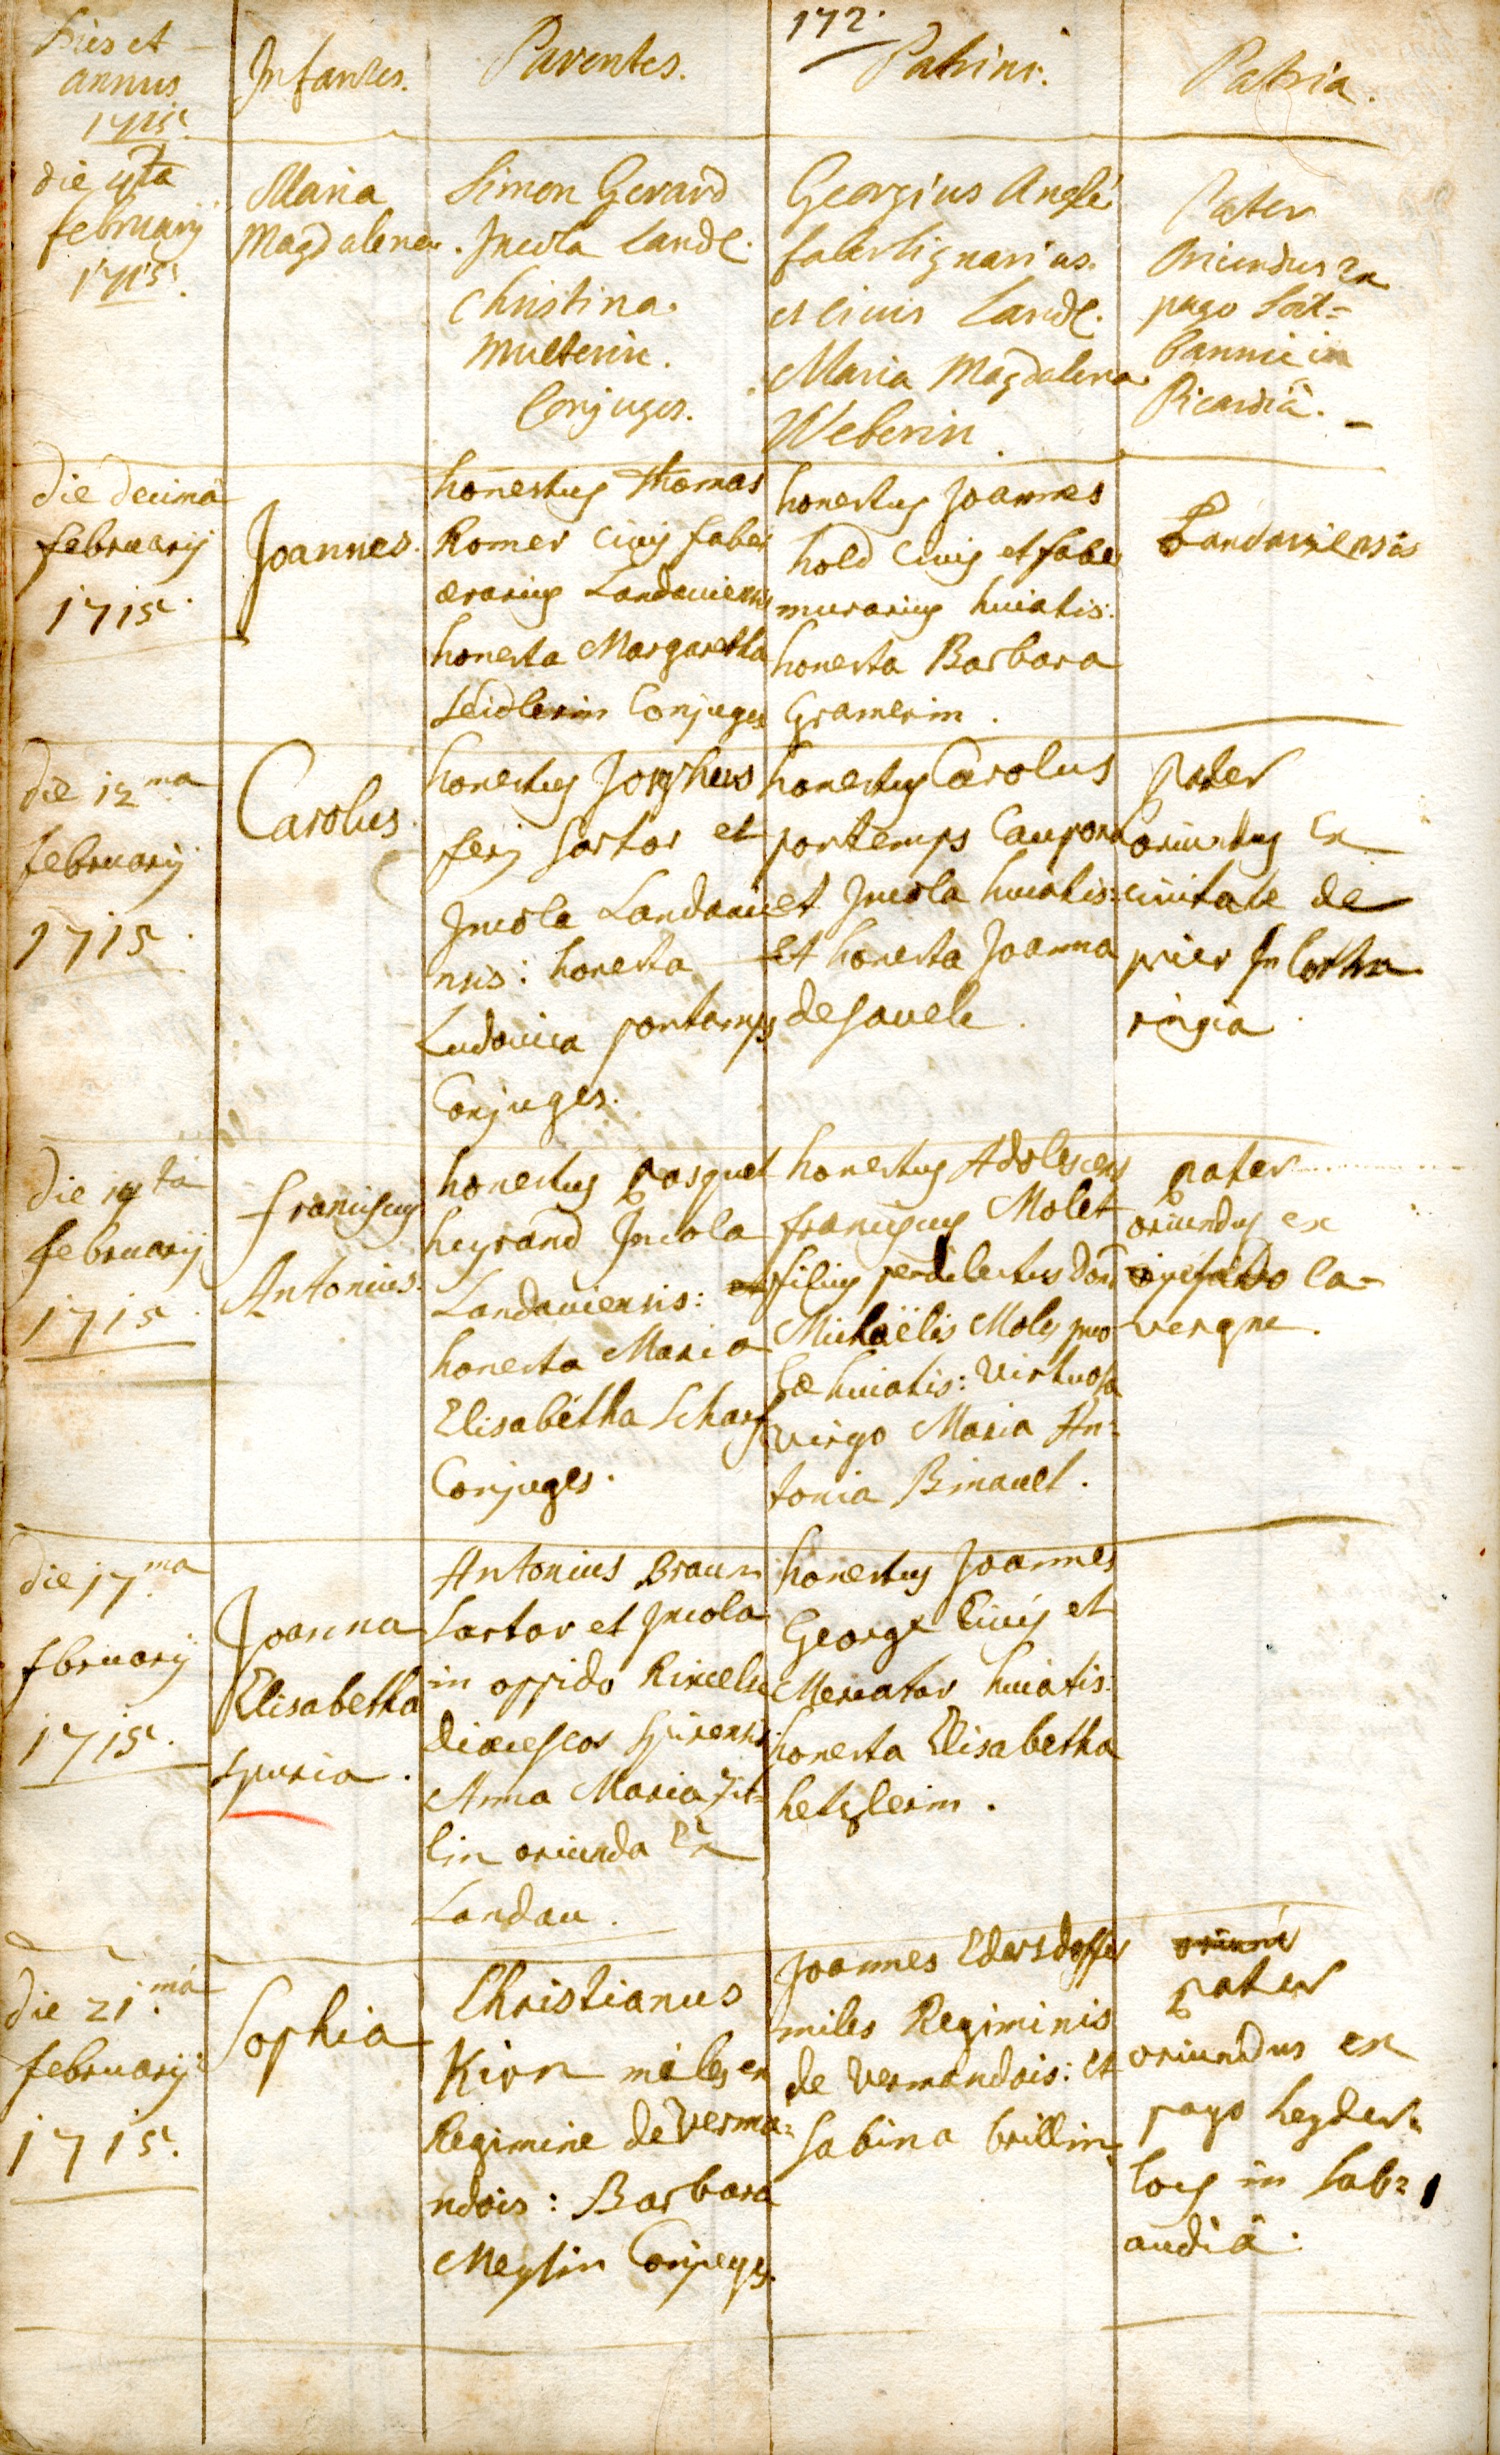 172.
Dies et
annus
1715.
Infantes.
Parentes.
Patrini.
Patria.
die 4ta
february
1715.
Maria
Magdalena.
Simon Gerard
Incola Land.
Christina
Multerin.
Conjuges.
Georgius Anglé
faber lignarius
et civis Land.
Maria Magdalena
Weberin
Pater
Oriundus ex
pago
in
Picardiâ.
die decima
february
1715.
Joannes.
honestus Thomas
Romer civis faber
ærarius Landaviensis
honesta Margaretha
Seidlerin Conjuges
honestus Joannes
hold Civis et faber
murarius huiatis:
honesta Barbara
Gramerin.
Landaviensis
die 12ma
february
1715.
Carolus.
honestus Josephus
ferj Sartor et
Incola Landavie
nsis: honesta
Ludovica portamps
Conjuges.
honestus Carolus
portemps Caupona
et Incola huiatis:
et honesta Joanna
desavele.
pater
oriundus Ex
civitate de
prier In Lotha
ringia.
die 14ta
february
1715.
franciscus
Antonius.
honestus Pasquet
heyrand Incola
Landaviensis:
honesta Maria
Elisabetha Scharf
Conjuges.
honestus Adolescens
franciscus Molet
filius perdilectus Dom
Michaëlis Molet inco
læ huiatis: virtuosa
virgo Maria An=
tonia Binault.
pater
oriundus ex
oppido la=
vergne.
die 17ma
fbruary
1715.
Joanna
Elisabetha
spuria.
Antonius Braun
Sartor et Incola
in oppido
Diœceseos Spirensis
Anna Maria Zit=
lin oriunda Ex
Landau.
honestus Joannes
George Civis et
Mercator huiatis:
honesta Elisabetha
hetzlerin.
die 21ma
february
1715.
Sophia
Christianus
Kirn miles ex
Regimine de Verma=
ndois: Barbara
Meylin Conjuges.
Joannes Edersdoffer
miles Regiminis
de Vermandois: et
Sabina brillin.
pater
oriundus ex
pago heyder=
loch in Sab=
audiâ.